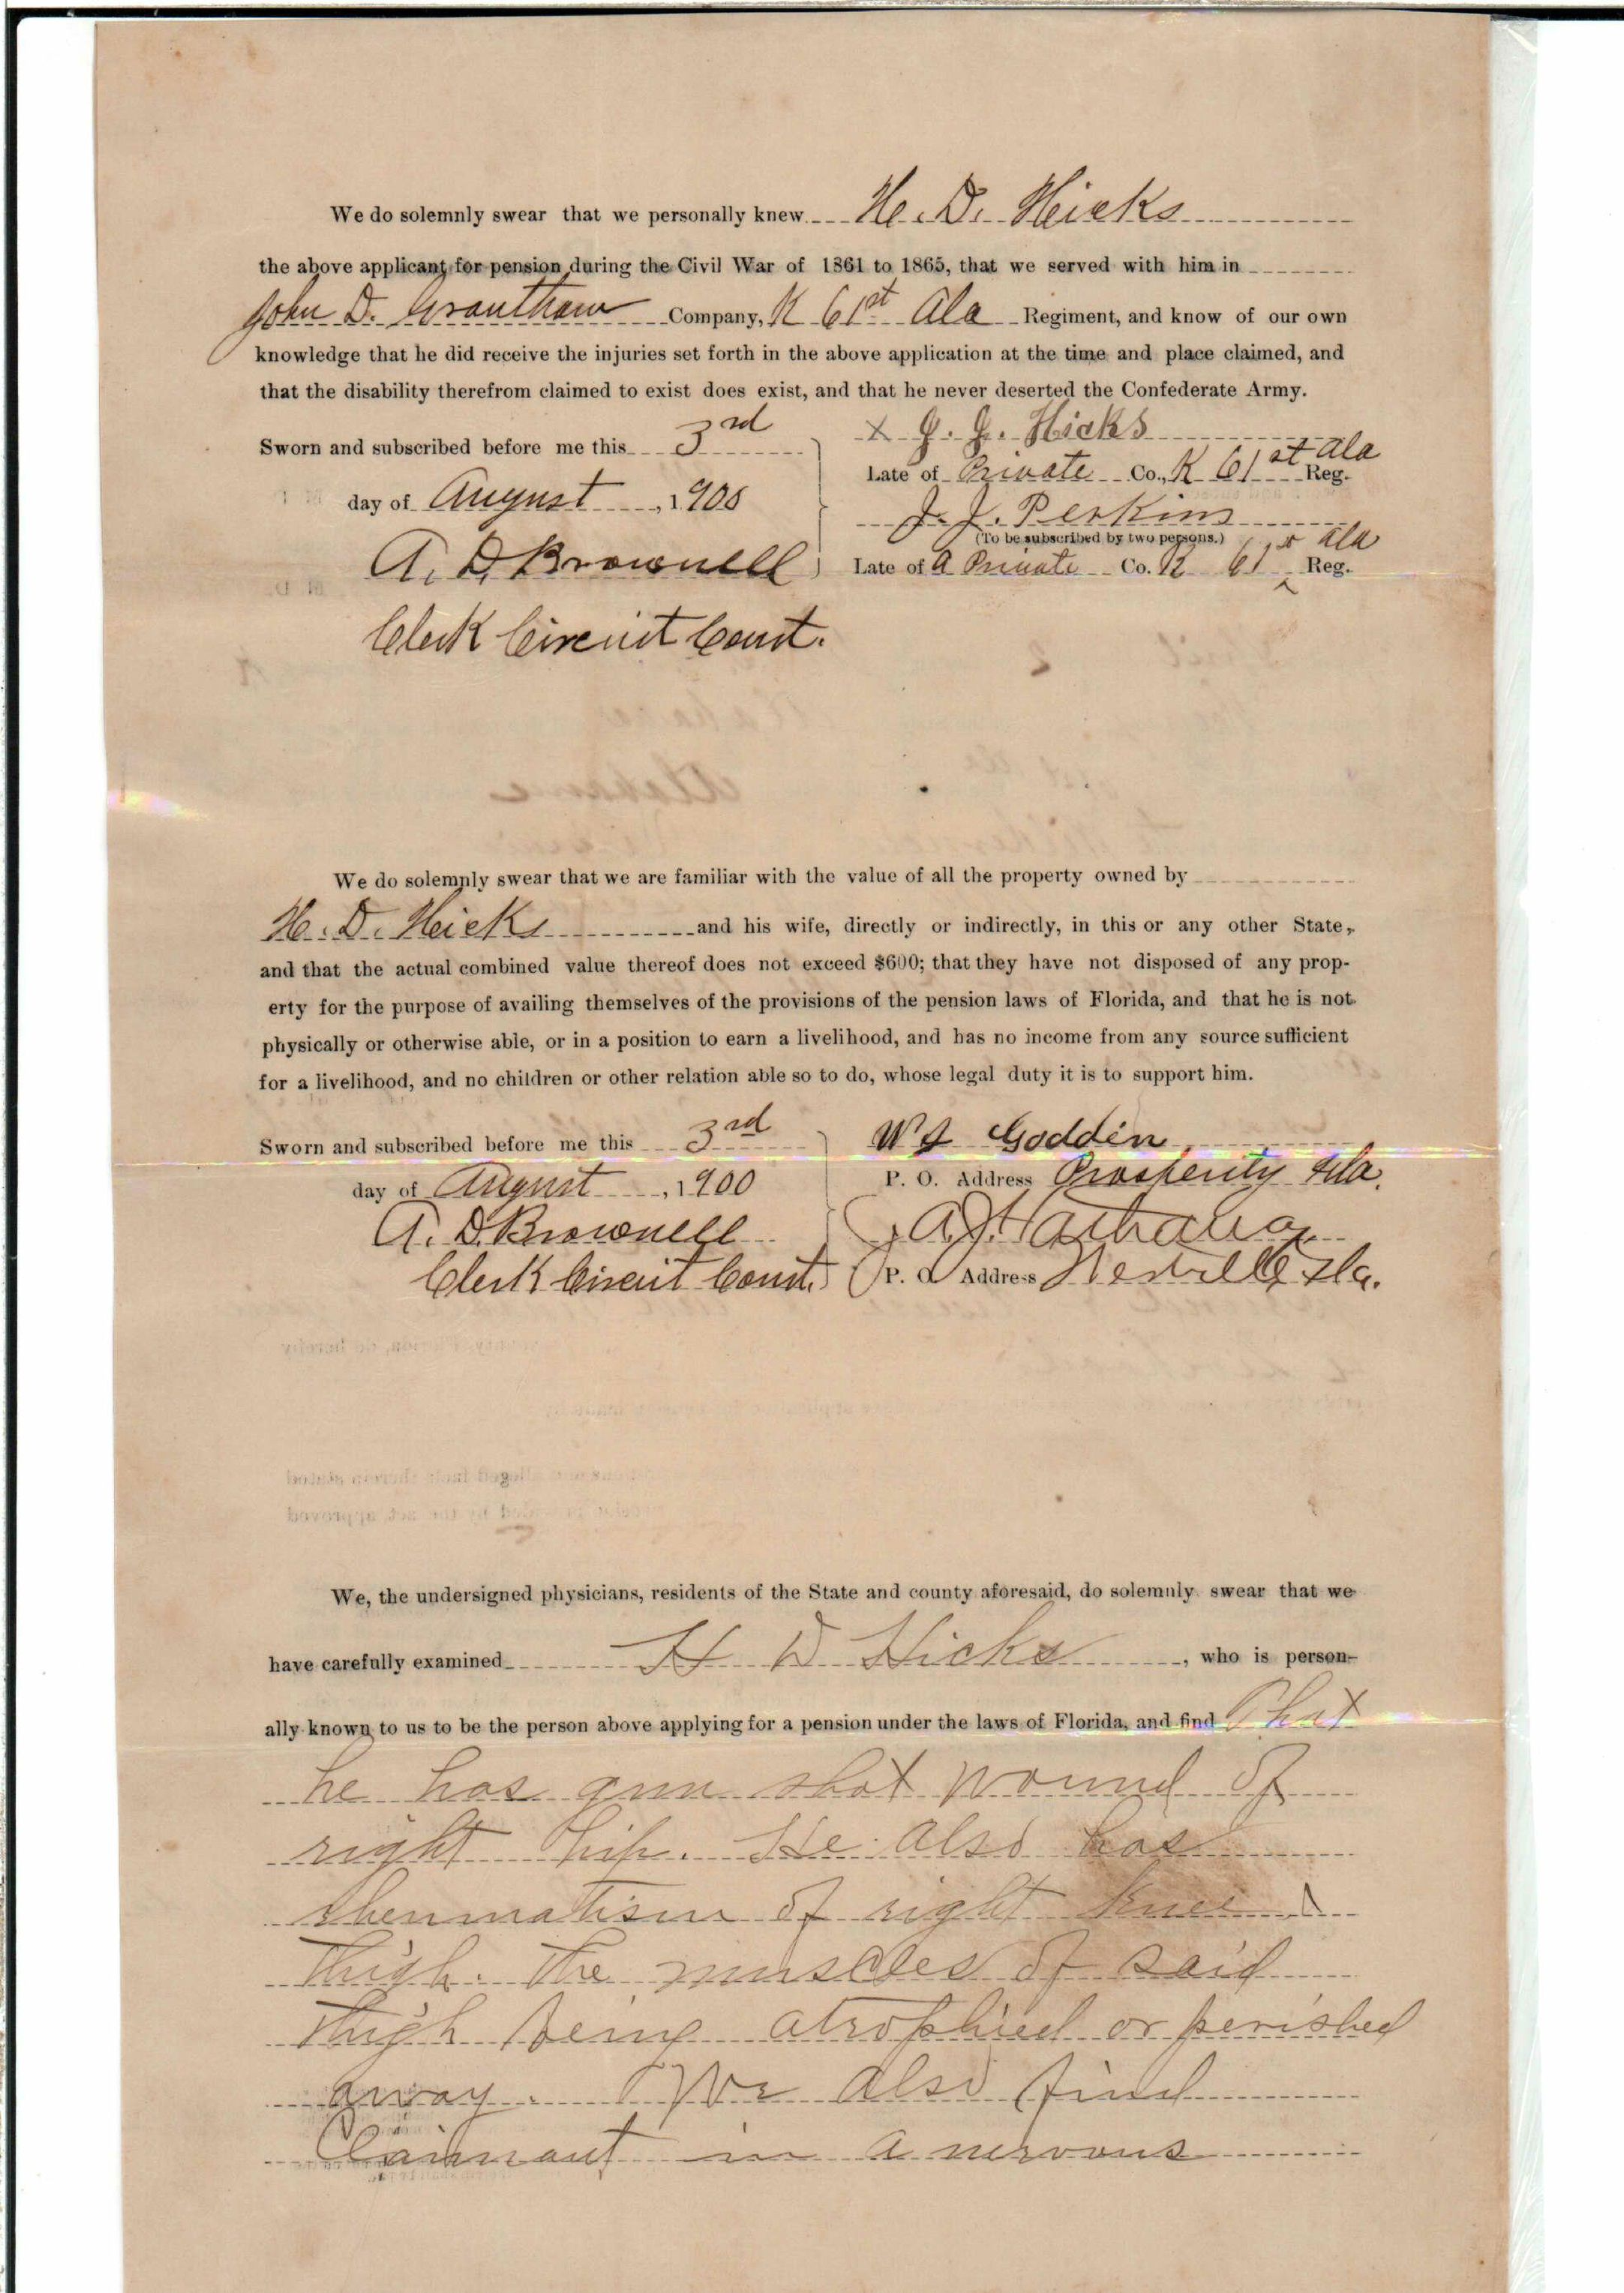 We do solemnly swear that we personally knew H. D. Hicks
the above applicant for pension during the Civil War of 1861 to 1865, that we served with him in
John D. Grantham Company, K 61st Ala Regiment, and know of our own
knowledge that he did receive the injuries set forth in the above application at the time and place claimed, and
that the disability therefrom claimed to exist does exist, and that he never deserted the Confederate Army.
Sworn and subscribed before me this 3rd
day of August, 1900
A. D. Brownell
Clerk Circuit Court.
X J. J. Hicks
Late of Private Co., K 61st Ala Reg.
J. J. Perkins
(To be subscribed by two persons.)
Late of A Private Co. K 61st Ala Reg.
We do solemnly swear that we are familiar with the value of all the property owned by
H. D. Hicks and his wife, directly or indirectly, in this or any other State,
and that the actual combined value thereof does not exceed $600; that they have not disposed of any prop-
erty for the purpose of availing themselves of the provisions of the pension laws of Florida, and that he is not
physically or otherwise able, or in a position to earn a livelihood, and has no income from any source sufficient
for a livelihood, and no children or other relation able so to do, whose legal duty it is to support him.
Sworn and subscribed before me this 3rd
day of August, 1900
A. D. Brownell
Clerk Circuit Court.
Godden
P. O. Address Prosperity Fla.
P. O. Address Westville Fla.
We, the undersigned physicians, residents of the State and county aforesaid, do solemnly swear that we
have carefully examined H D Hicks, who is person-
ally known to us to be the person above applying for a pension under the laws of Florida, and find That
he has gun shot wound of
right hip. He also has
rheumatism of right knee &
thigh. The muscles of said
thigh being atrophied or perished
away. We also find
Claimant in a nervous